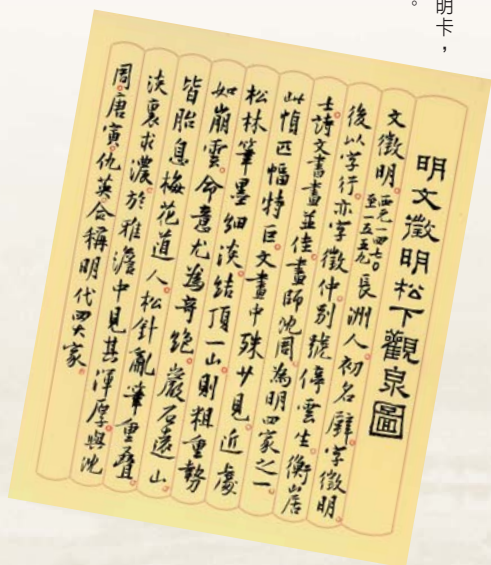 明卡，
。
明文徵明松下觀泉圖
文徵明。西元一四七〇至一五五九長洲人。初名壁。字徵明
後以字行。亦字徵仲。別號停雲生。衡山居
士。詩文書畫並佳。畫師沈周。為明四家之一。
此幀匹幅特巨。文畫中殊少見。近處
松林筆墨細淡。結頂一山。則粗重勢
如崩雲。命意尤為奇絕。巖石遠山
皆胎息梅花道人。松針亂筆重疊
淡裏求濃。於雅澹中見其渾厚。與沈
周。唐寅。仇英。合稱明代四大家。